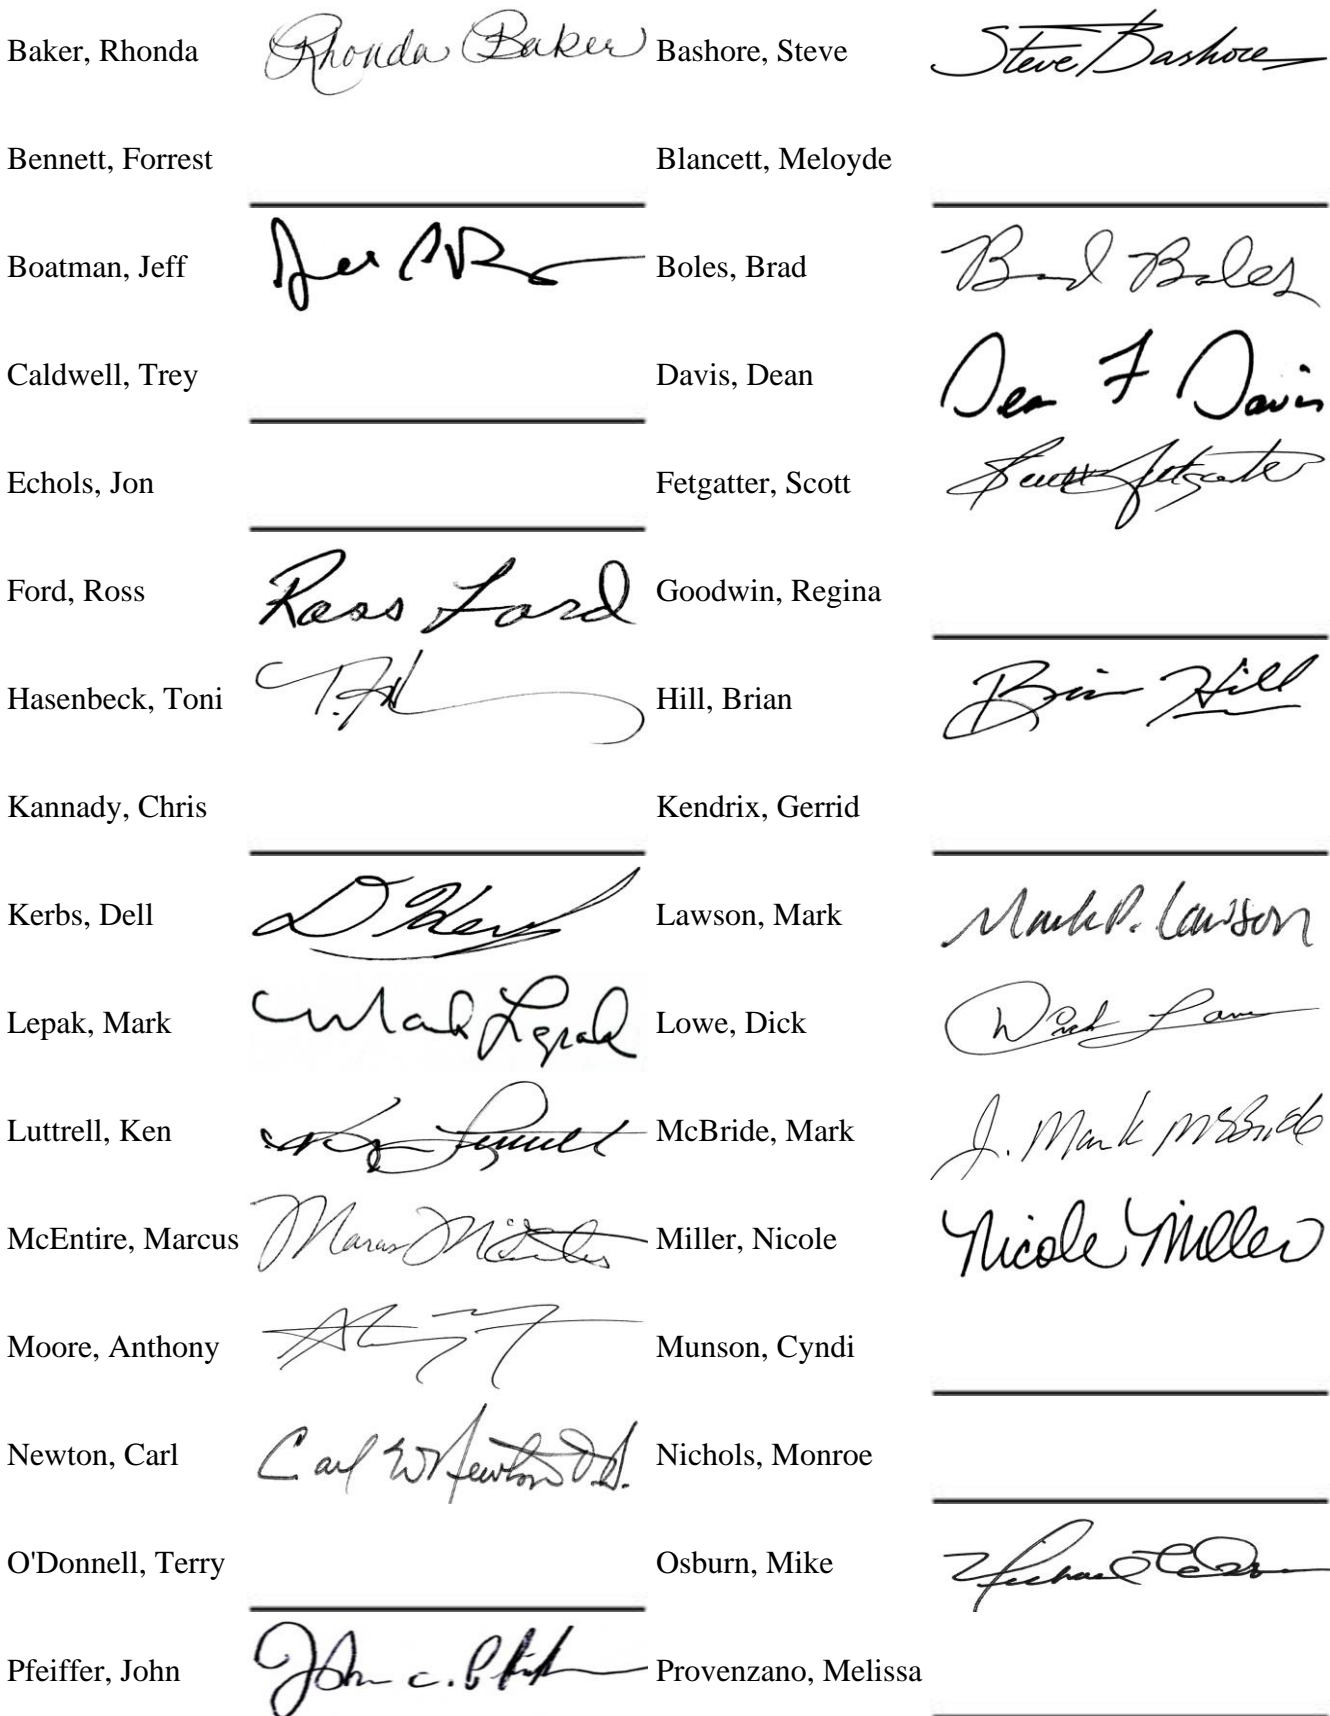 Baker, Rhonda Rhonda Baker Bashore, Steve Steve Bashore
Bennett, Forrest Blancett, Meloyde
Boatman, Jeff Boles, Brad Brad Boles
Caldwell, Trey Davis, Dean Dean F Davis
Echols, Jon Fetgatter, Scott Scott Fetgatter
Ford, Ross Ross Ford Goodwin, Regina
Hasenbeck, Toni Hill, Brian Brian Hill
Kannady, Chris Kendrix, Gerrid
Kerbs, Dell D Kerbs Lawson, Mark Mark P. Lawson
Lepak, Mark Mark Lepak Lowe, Dick Dick Lowe
Luttrell, Ken McBride, Mark J. Mark McBride
McEntire, Marcus Marcus McEntire Miller, Nicole Nicole Miller
Moore, Anthony Munson, Cyndi
Newton, Carl Carl W Newton D.O. Nichols, Monroe
O'Donnell, Terry Osburn, Mike Michael
Pfeiffer, John John C. Provenzano, Melissa